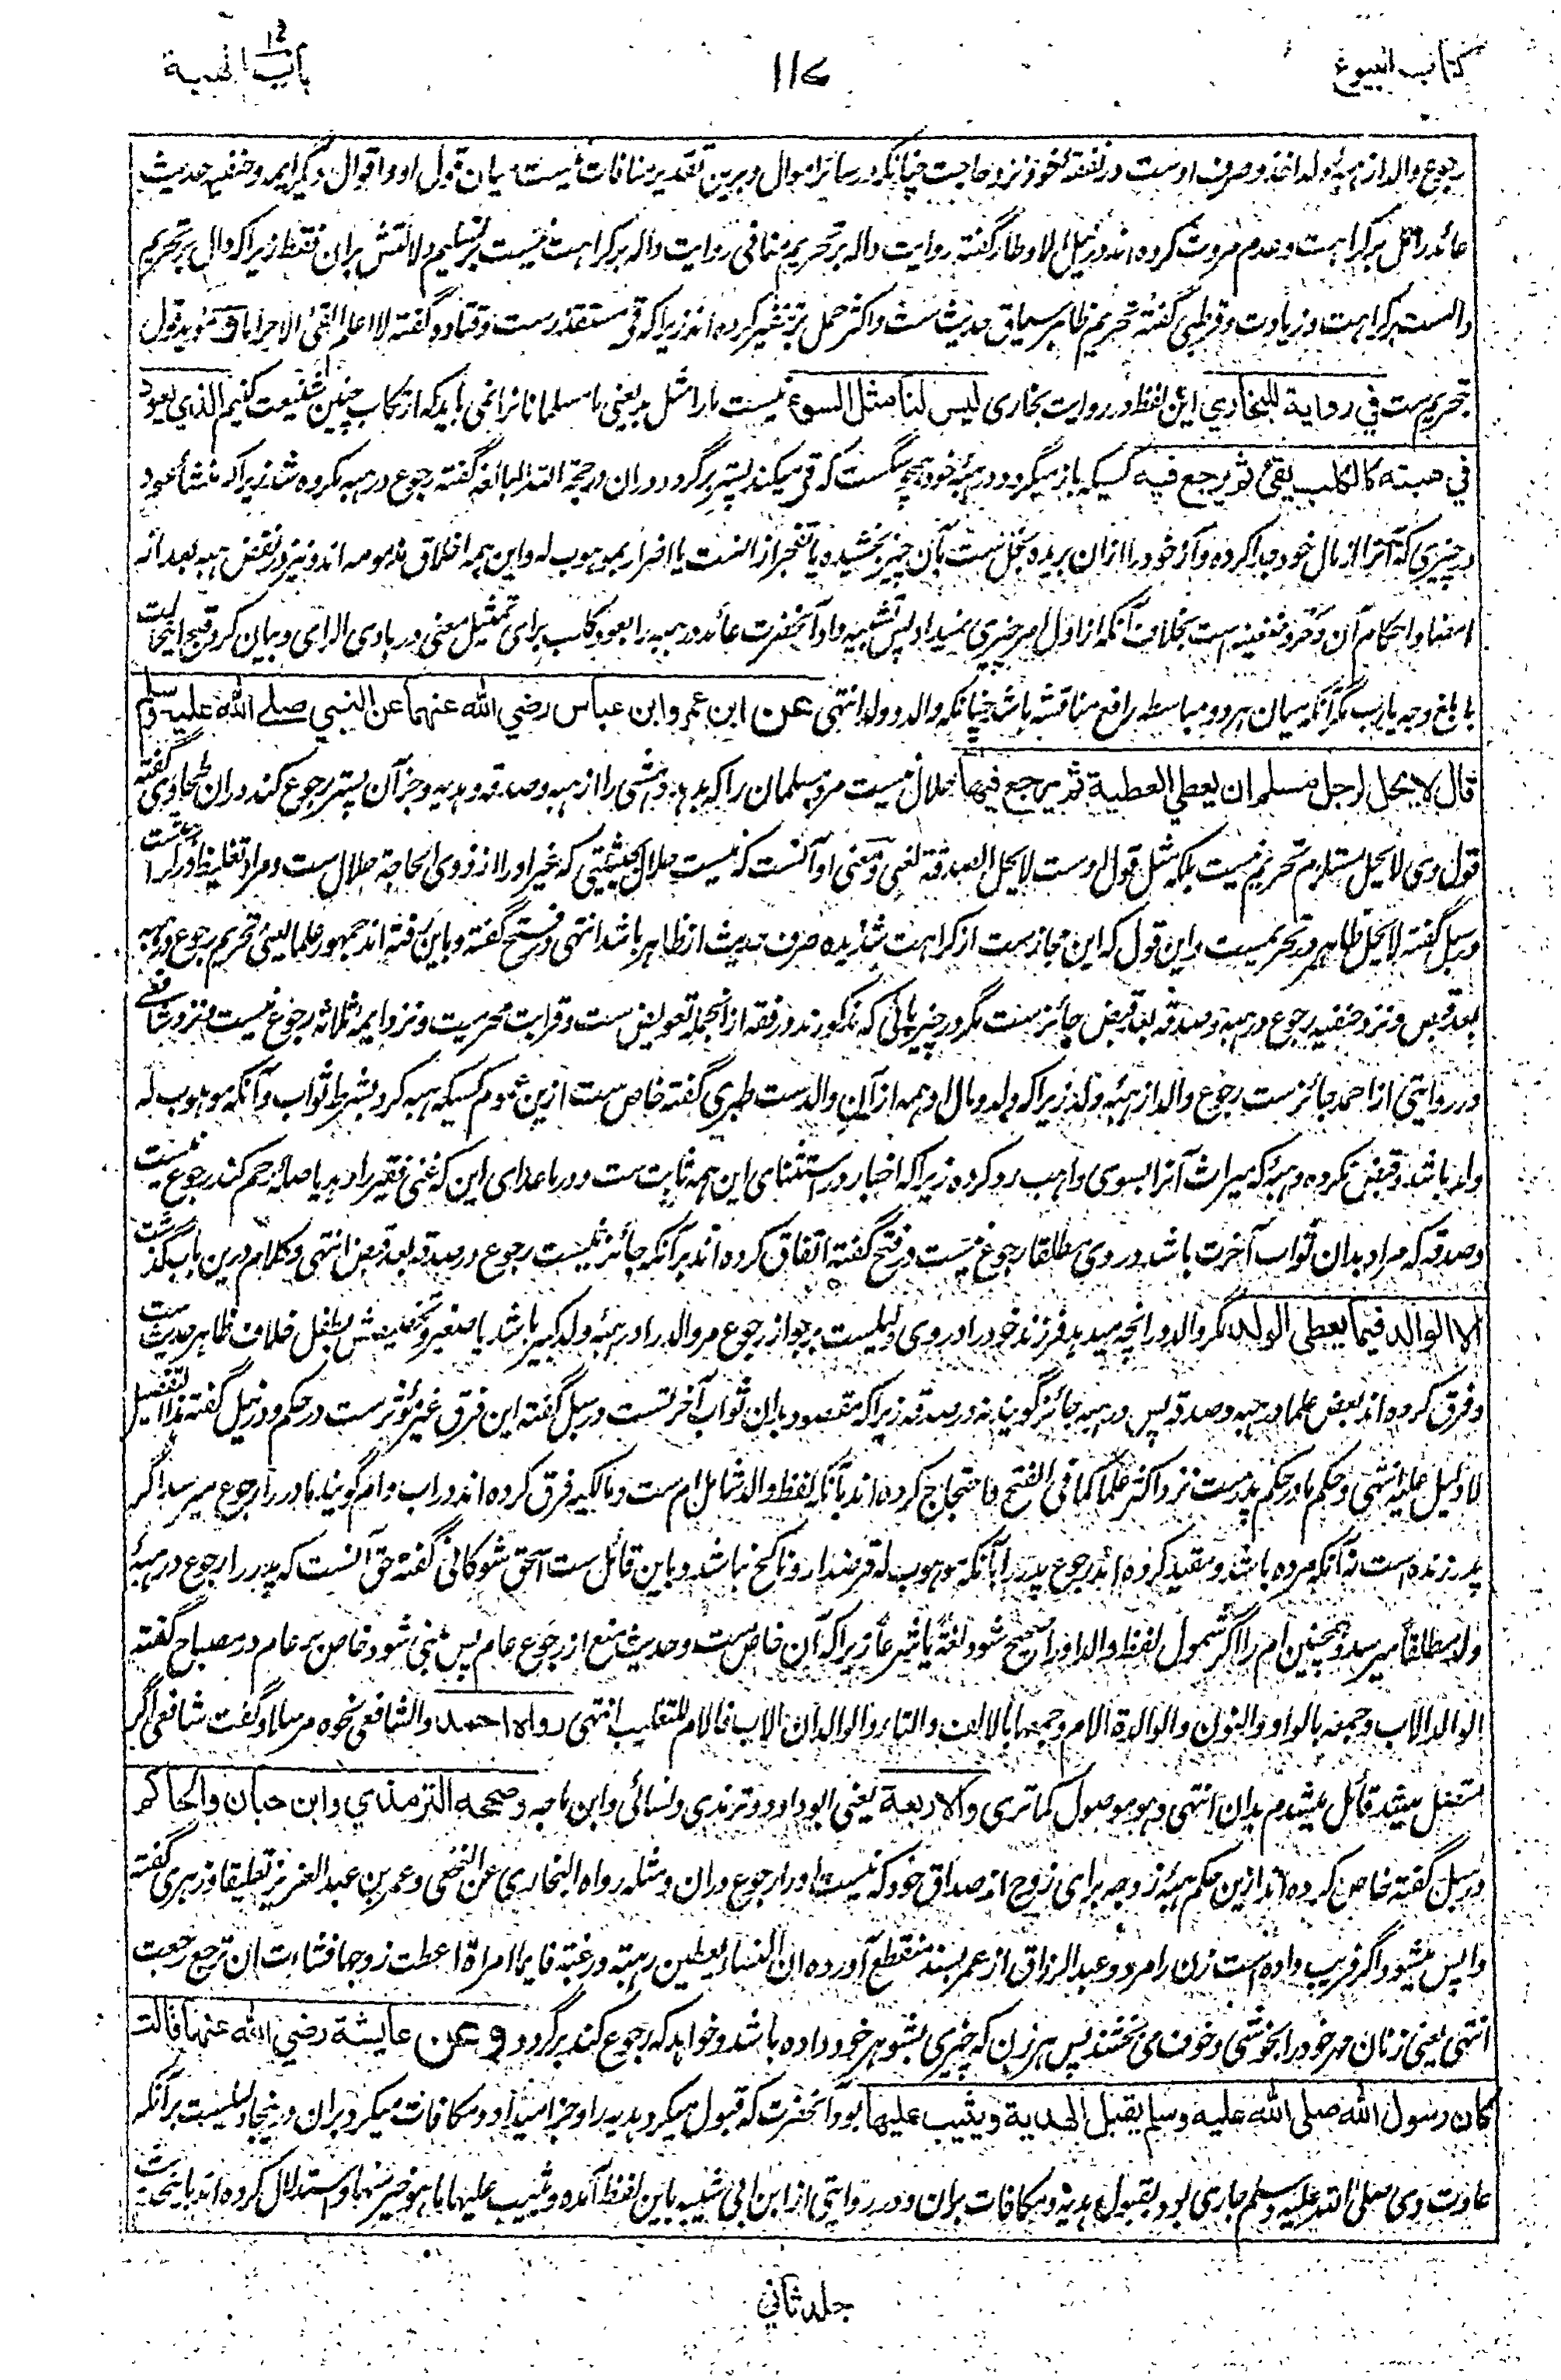 كتاب البيوع
١١٧
باب الهبة
رجوع والد از هبهٔ ولد اخذ و صرف اوست در نفقهٔ خود نزد حاجت چنانکه در سائر اموال و برین تقدیر منافات نیست میان قول او و اقوال دیگر ایمه و حنفیه حدیث
عائد را حمل بر کراهت و عدم مروت کرده اند و در نیل الاوطار گفته روایت داله بر تحریم منافی روایت داله بر کراهت نیست بر تسلیم دلالتش بران فقط زیرا که دال بر تحریم
دالست بر کراهت و زیادت و قرطبی گفته تحریم ظاهر سیاق حدیث ست و اکثر حمل بر تنفیر کرده اند زیرا که قی مستقذرست و قتاده گفته لا اعلم القئ الا حراما و مؤید قول
تحریم ست في رواية للبخاري این لفظ و در روایت بخاری ليس لنا مثل السوء نیست ما را مثل بد یعنی ما مسلمانانرا نمی باید که ارتکاب چنین شنیعت کنیم الذي يعود
في هبته كالكلب يقئ ثم يرجع فيه کسیکه باز میگردد در هبهٔ خود همچو سگست که قی میکند پستر برگردد دران در حجة الله البالغه گفته رجوع در هبه مکروه شد زیرا که منشأ عود
در چیزی که آنرا از مال خود جدا کرده و آز خود را ازان بریده بخل ست بآن چیز بخشیده یا تضجر از انست یا اضرار بموهوب له و این همه اخلاق مذمومه اند و نیز در نقض هبه بعد از
امضا و احکام آن وحر و ضغینه است بخلاف آنکه از اول امر چیزی نمیداد پس تشبیه داد آنحضرت عائد در هبه را بعود کلب برای تمثیل معنی در بادی الرای و بیان کرد قبح این حالت
بابلغ وجه یا رب مگر آنکه میان هر دو مباسطه رافع مناقشه باشد چنانکه والد و ولد انتهی عن ابن عمر وابن عباس رضي الله عنهما عن النبي صلى الله عليه وسلم
قال لا يحل لرجل مسلم ان يعطي العطية ثم يرجع فيها حلال نیست مرد مسلمان را که بدهد دهشی را از هبه و صدقه و هدیه و جز آن پستر رجوع کند دران طحاوی گفته
قول وی لا یحل مستلزم تحریم نیست بلکه مثل قول اوست لا یحل الصدقة لغنی و معنی او آنست که نیست حلال بحیثیتی که غیر او را از ذوی الحاجة حلال ست و مراد تغلیظ در کراهت ست
در سبل گفته لا یحل ظاهر در تحریمست و این قول که این مجازست از کراهت شدیده صرف حدیث از ظاهر باشد انتهی در فتح گفته و باین رفته اند جمهور علما یعنی تحریم رجوع در هبه
بعد قبض و نزد حنفیه رجوع در هبه و صدقه بعد قبض جائز ست مگر در چیزهائی که مذکورند در فقه از انجمله تعویض ست و قرابت محرمیت و نزد ایمه ثلاثه رجوع نیست و نزد شافعی
در روایتی از احمد جائزست رجوع والد از هبهٔ ولد زیرا که ولد و مال او همه از آن والدست طبری گفته خاص ست ازین عموم کسیکه هبه کرد بشرط ثواب و آنکه موهوب له
ولد باشد و قبض نکرده و هبه که میراث آنرا بسوی واهب رد کرده زیرا که اخبار در استثنای این همه ثابت ست و در ماعدای این که غنی فقیر را دهد یا صلهٔ رحم کند رجوع نیست
و صدقه که مراد بدان ثواب آخرت باشد در وی مطلقا رجوع نیست در فتح گفته اتفاق کرده اند بر آنکه جائز نیست رجوع در صدقه بعد قبض انتهی و کلام درین باب گذشت
الا الوالد فيما يعطى الولد مگر والد در انچه میدهد فرزند خود را در وی دلیلست بر جواز رجوع مر والد را در هبهٔ ولد کبیر باشد یا صغیر و تخصیصش بطفل خلاف ظاهر حدیث ست
و فرق کرده اند بعض علما در هبه و صدقه پس در هبه جائز گویند نه در صدقه زیرا که مقصود بدان ثواب آخرتست در سبل گفته این فرق غیر مؤثرست در حکم و در نیل گفته هذا التفصیل
لا دلیل علیه انتهی و حکم مادر حکم پدرست نزد اکثر علما کما فی الفتح و احتجاج کرده اند بآنکه لفظ والد شامل ام ست و مالکیه فرق کرده اند در اب و ام گویند مادر را رجوع میرسد اگر
پدر زنده است نه آنکه مرده باشد و مقید کرده اند رجوع پدر را بآنکه موهوب له قرضدار و ناکح نباشد و باین قائل ست اسحق شوکانی گفته حق آنست که پدر را رجوع در هبهٔ
ولد مطلقا میرسد و همچنین ام را اگر شمول لفظ والد او را صحیح شود لغةً یا شرعاً زیرا که آن خاص ست و حدیث منع از رجوع عام پس مبنی شود خاص بر عام در مصباح گفته
الوالد الاب وجمعه بالواو والنون والوالدة الام وجمعها بالالف والتاء والوالدان الاب فالام للتغليب انتهى رواه احمد والشافعی نحوه مرسلا و گفت شافعی اگر
متصل میشد قائل میشدم بدان انتهی و هو موصول کما تری والاربعة یعنی ابو داود و ترمذی و نسائی و ابن ماجه وصححه الترمذي وابن حبان والحاكم
در سبل گفته خاص کرده اند ازین حکم هبهٔ زوجه برای زوج از صداق خود که نیست او را رجوع دران و مثله رواه البخاری عن النخعی و عمر بن عبد العزیز تعلیقا و زهری گفته
واپس میشود اگر فریب داده است زن را مرد و عبد الرزاق از عمر بسند منقطع آورده ان النساء يعطين رهبة ورغبة فايما امراة اعطت زوجها فشاءت ان ترجع رجعت
انتهی یعنی زنان مهر خود را بخوشی و خوف می بخشند پس هر زن که چیزی بشوهر خود داده باشد و خواهد که رجوع کند برگردد وعن عايشة رضي الله عنها قالت
كان رسول الله صلى الله عليه وسلم يقبل الهدية ويثيب عليها بود آنحضرت که قبول میکرد هدیه را و جزا میداد و مکافات میکرد بران درینجا دلیلست بر آنکه
عادت وی صلی الله علیه وسلم جاری بود بقبول هدیه و مکافات بران و در روایتی از ابن ابی شیبه باین لفظ آمده ویثیب علیها ما هو خیر منها و استدلال کرده اند باین حدیث
جلد ثاني